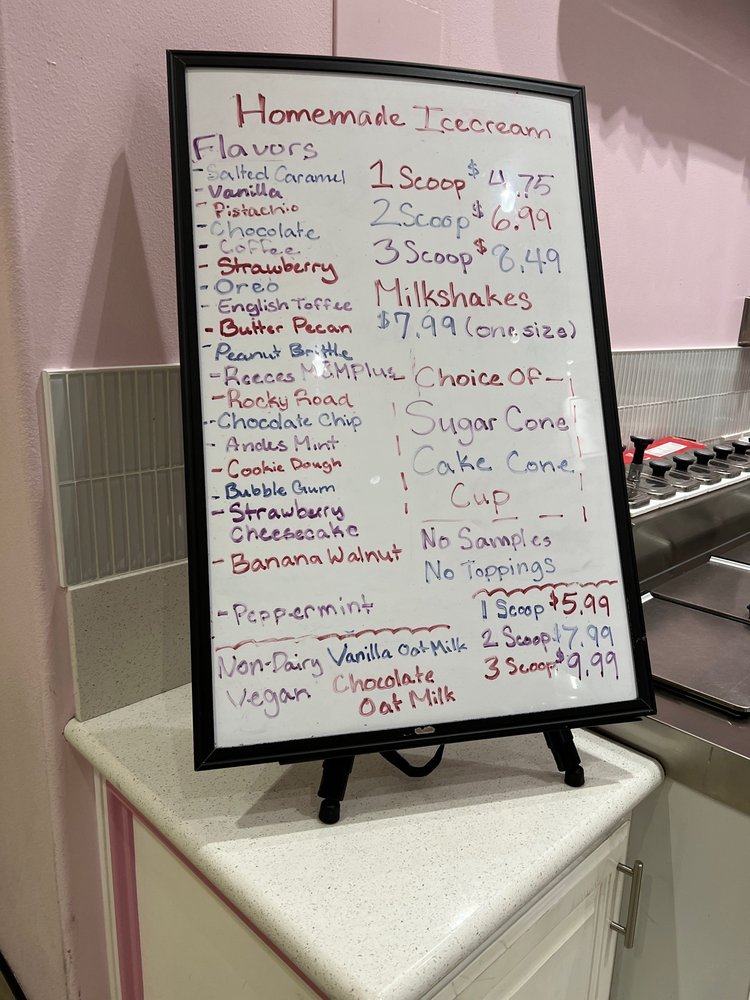 Homemade Icecream
Flavors
- Salted Caramel
- Vanilla
- Pistachio
- Chocolate
- Coffee
- Strawberry
- Oreo
- English Toffee
- Butter Pecan
- Peanut Brittle
- Reeces M&M Plus
- Rocky Road
- Chocolate Chip
- Andes Mint
- Cookie Dough
- Bubble Gum
- Strawberry
Cheesecake
- Banana Walnut
- Peppermint
1 Scoop $4.75
2 Scoop $6.99
3 Scoop $8.49
Milkshakes
$7.99 (one size)
Choice Of
Sugar Cone
Cake Cone
Cup
No Samples
No Toppings
Non-Dairy
Vegan
Vanilla Oat Milk
Chocolate
Oat Milk
1 Scoop $5.99
2 Scoop $7.99
3 Scoop $9.99